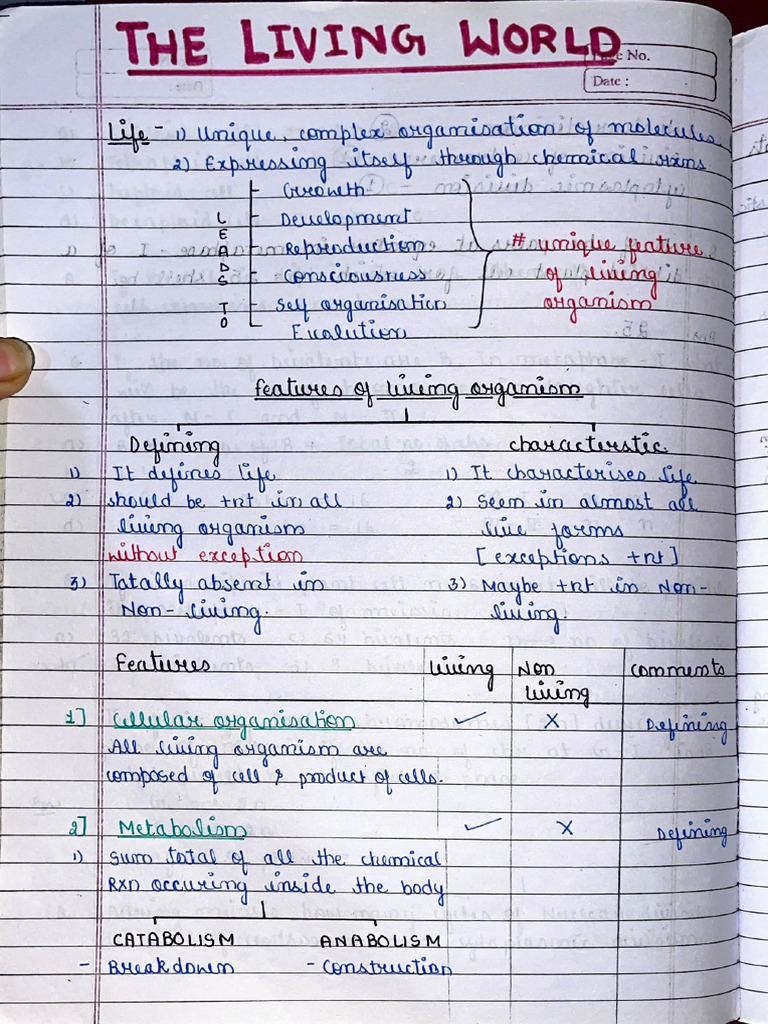 THE LIVING WORLD
Page No.
Date :
Life - 1) Unique, complex organisation of molecules
2) Expressing itself through chemical rxns
LEADS TO
Growth
Development
Reproduction
Consciousness
Self organisation
Evolution
# unique feature
of living
organism
features of living organism
Defining
1) It defines life
2) should be +nt in all
living organism
without exception
3) Totally absent in
Non-living.
characterstic
1) It characterises life
2) Seen in almost all
live forms
[exceptions +nt]
3) Maybe +nt in Non-
living.
Features living Non living comments
1] Cellular organisation ✓ X Defining
All living organism are
composed of cell & product of cells.
2] Metabolism ✓ X Defining
1) Sum total of all the chemical
Rxn occuring inside the body
CATABOLISM ANABOLISM
- Breakdown - Construction